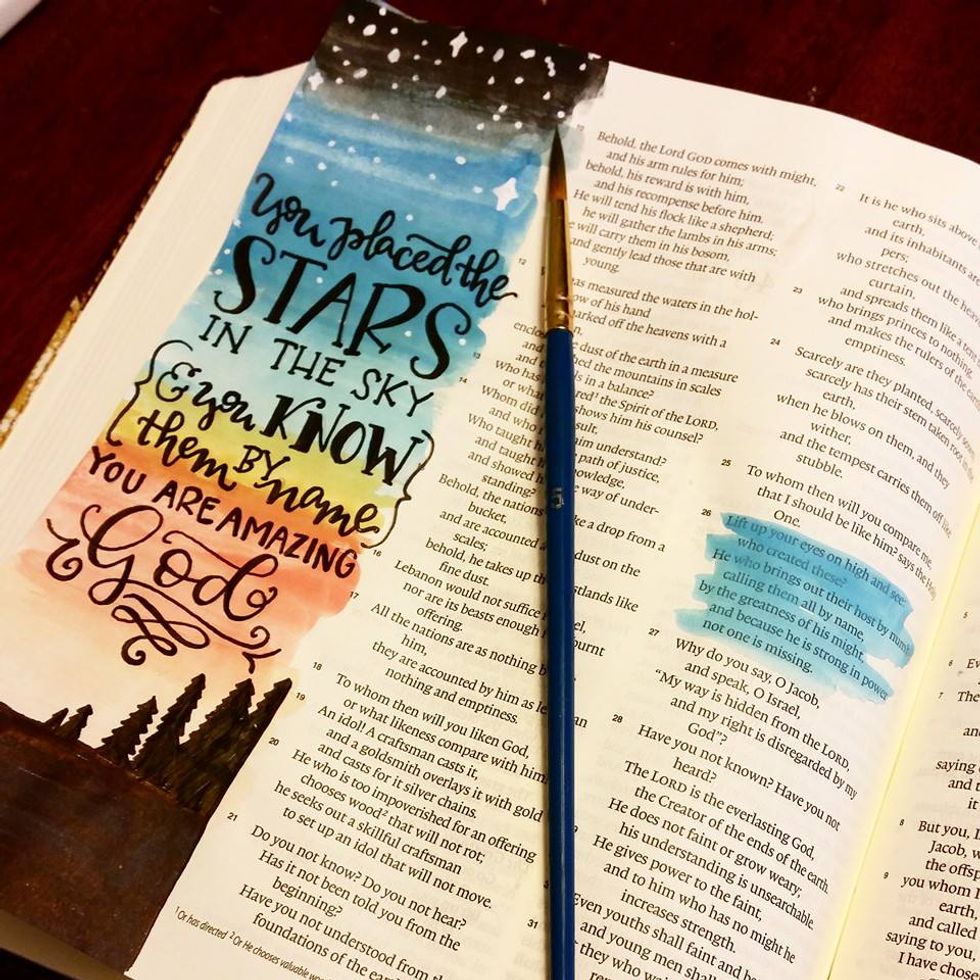 You placed the
STARS
IN THE SKY
& you KNOW
them BY name
YOU ARE AMAZING
God
10 Behold, the Lord GOD comes with might,
and his arm rules for him;
behold, his reward is with him,
and his recompense before him.
He will tend his flock like a shepherd;
he will gather the lambs in his arms;
will carry them in his bosom,
and gently lead those that are with
young.
12 has measured the waters in the hol-
low of his hand
marked off the heavens with a
dust of the earth in a measure
the mountains in scales
in a balance?
13 Who has the Spirit of the LORD,
or what shows him his counsel?
14 Whom did
and who him understand?
Who taught path of justice,
and taught knowledge,
and showed way of under-
standing?
Behold, the nations like a drop from a
bucket,
and are accounted dust on the
scales;
behold, he takes up the coastlands like
fine dust.
16 Lebanon would not suffice
nor are its beasts enough burnt
offering.
17 All the nations are as nothing
him,
they are accounted by him as less than
nothing and emptiness.
18 To whom then will you liken God,
or what likeness compare with him?
19 An idol! A craftsman casts it,
and a goldsmith overlays it with gold
and casts for it silver chains.
20 He who is too impoverished for an offering
chooses wood² that will not rot;
he seeks out a skillful craftsman
to set up an idol that will not move.
21 Do you not know? Do you not hear?
Has it not been told you from the
beginning?
Have you not understood from the
foundations of the
¹Or has directed ²Or He chooses valuable
22 It is he who sits above
earth,
and its inhabitants
pers;
who stretches out the
curtain,
and spreads them like a tent
23 who brings princes to nothing,
and makes the rulers of the
emptiness.
24 Scarcely are they planted, scarcely
scarcely has their stem taken root
earth,
when he blows on them, and they
wither,
and the tempest carries them off like
stubble.
25 To whom then will you compare me,
that I should be like him? says the Holy
One.
26 Lift up your eyes on high and see:
who created these?
He who brings out their host by number,
calling them all by name,
by the greatness of his might,
and because he is strong in power
not one is missing.
27 Why do you say, O Jacob,
and speak, O Israel,
"My way is hidden from the LORD,
and my right is disregarded by my
God"?
28 Have you not known? Have you not
heard?
The LORD is the everlasting God,
the Creator of the ends of the earth.
He does not faint or grow weary;
his understanding is unsearchable.
He gives power to the faint,
and to him who has no might he
increases strength.
Even youths shall faint and be
and young men shall
31 they who
5
6
7
and
saying
and
it
8 But you, I
Jacob, w
the offsp
9 you whom I
earth
and called
saying to you
I have chos